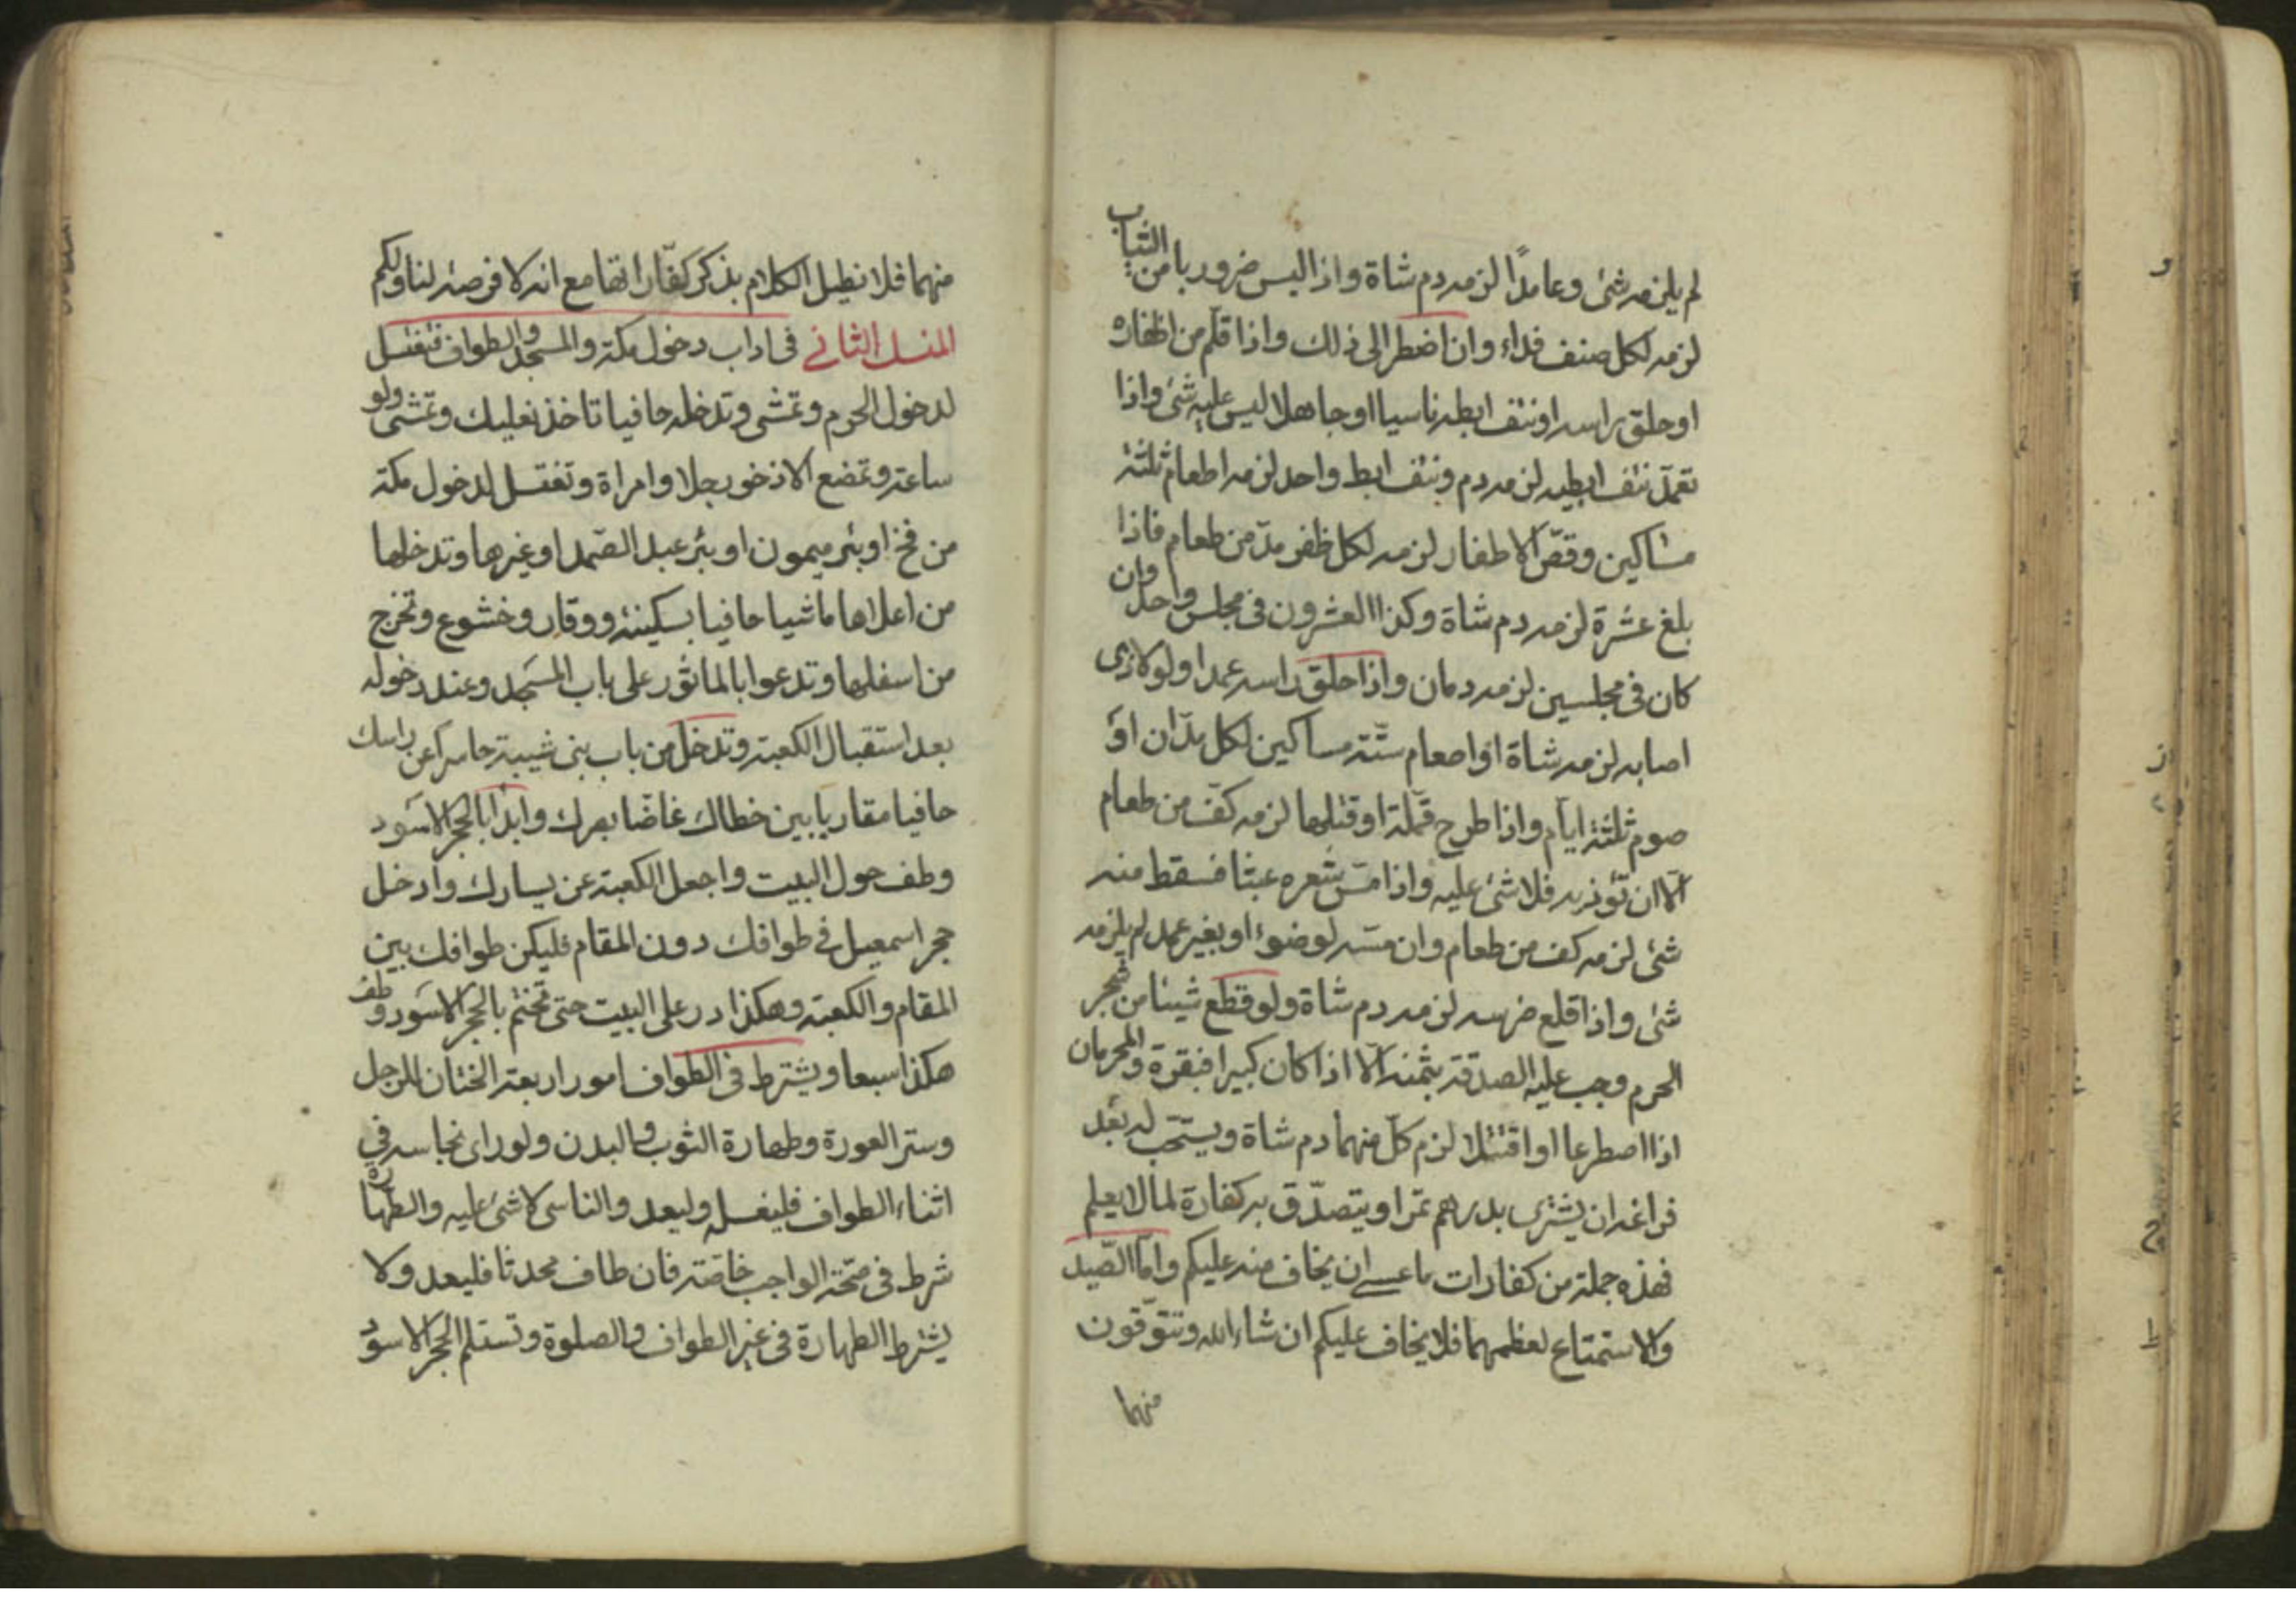 لم يلزمه شئ وعامدًا لزمه دم شاة واذا لبس ضروربا من الثياب
لزمه لكل صنف فداء وان اضطر الى ذلك واذا قلّم من اظفاره
او حلق راسه او نتف ابطه ناسيا او جاهلا ليس عليه شئ واذا
تعمّد نتف ابطيه لزمه دم ونتف ابط واحد لزمه اطعام ثلثة
مساكين وقصّ الاظفار لزمه لكل ظفر مدّ من طعام فاذا
بلغ عشرة لزمه دم شاة وكذا العشرون فى مجلس واحد وان
كان فى مجلسين لزمه دمان واذا حلق راسه عمدا ولو لاذى
اصابه لزمه شاة او اطعام ستّة مساكين لكل مدّان او
صوم ثلثة ايام واذا طرح قمّلة او قتلها لزمه كفّ من طعام
الّا ان تؤذيه فلا شئ عليه واذا مسّ شعره عبثا فسقط منه
شئ لزمه كف من طعام وان مسّه لوضوء او بغير عمد لم يلزمه
شئ واذا قلع ضرسه لزمه دم شاة ولو قطع شيئا من شجر
الحرم وجب عليه الصدقة بثمنه الّا اذا كان كبيرا فبقرة والمحرمان
اذا اصطرعا او اقتتلا لزم كلّ منهما دم شاة ويستحّب له بعد
فراغه ان يشترى بدرهم تمرا ويتصدّق به كفارة لما لا يعلم
فهذه جملة من كفارات ما عسے ان يخاف منه عليكم وامّا الصّيد
والاستمتاع لعظمهما فلا يخاف عليكم ان شاء الله وتتوقون
منهما
منهما فلا نطيل الكلام بذكر كفّاراتها مع انه لا فرصة لنا ولكم
المنسك الثانے فى اداب دخول مكة والمسجد والطواف فتغتسل
لدخول الحرم وتمشى وتدخله حافيا تاخذ نعليك وتمشى ولو
ساعة وتمضغ الاذخر رجلا وامراة وتغتسل لدخول مكة
من فخ او بئر ميمون او بئر عبد الصّمد او غيرها وتدخلها
من اعلاها ماشيا حافيا بسكينة ووقار وخشوع وتخرج
من اسفلها وتدعوا بالماثور على باب المسجد وعند دخوله
بعد استقبال الكعبة وتدخل من باب بنى شيبة حاسرا عن راسك
حافيا مقاربا بين خطاك غاضّا بصرك وابدا بالحجر الاسود
وطف حول البيت واجعل الكعبة عن يسارك وادخل
حجر اسمعيل فے طوافك دون المقام فليكن طوافك بين
المقام والكعبة وهكذا در على البيت حتى تختم بالحجر الاسود وطف
هكذا سبعا ويشترط فى الطواف امور اربعة الختان للرجل
وستر العورة وطهارة الثوب والبدن ولو راى نجاسة فے
اثناء الطواف فليغسله وليعد والناسى لا شئ عليه والطهارة
شرط فى صحّة الواجب خاصّة فان طاف محدثا فليعد ولا
يشترط الطهارة فى غير الطواف والصلوة وتستلم الحجر الاسود